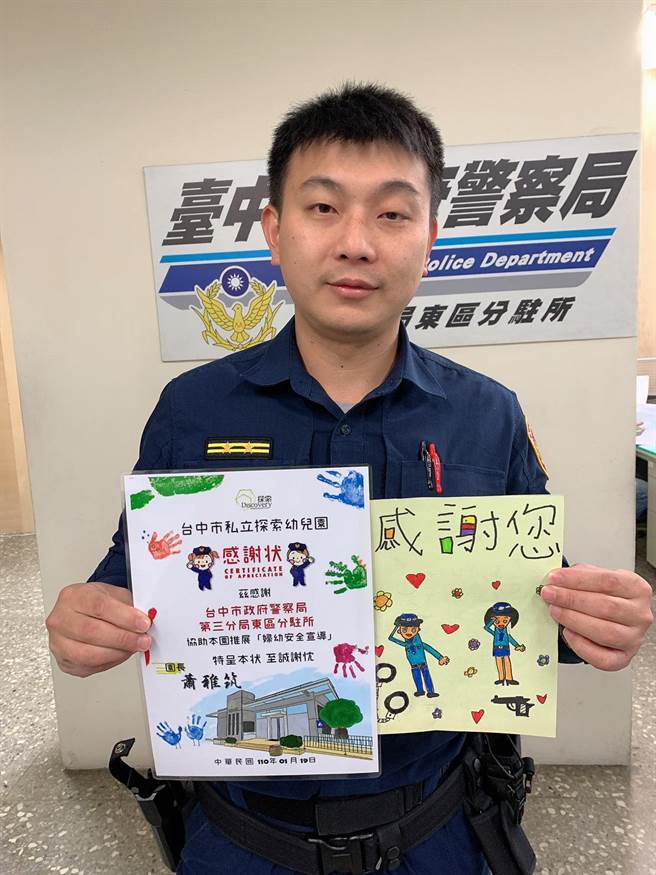 臺中
警察局
Police Department
局東區分駐所
探索
Discovery
台中市私立探索幼兒園
感謝狀
CERTIFICATE
OF APRECIATION
茲感謝
台中市政府警察局
第三分局東區分駐所
協助本園推展「婦幼安全宣導」
特呈本狀 至誠謝忱
園長
蕭雅筑
中華民國 110年 01月 19日
感謝您